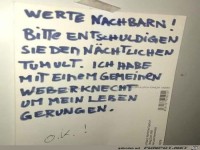 WERTE NACHBARN!
BITTE ENTSCHULDIGEN
SIE DEN NÄCHTLICHEN
TUMULT. ICH HABE
MIT EINEM GEMEINEN
WEBERKNECHT
UM MEIN LEBEN
GERUNGEN.